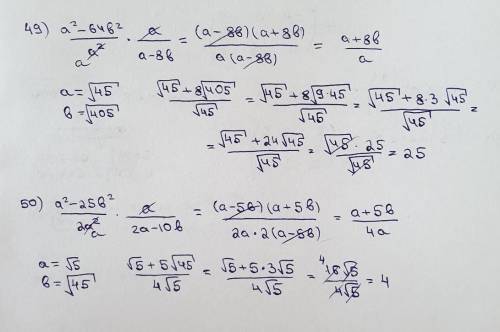 49) (a² - 64b²)/a² · a/(a - 8b) = (a - 8b)(a + 8b)/(a(a - 8b)) = (a + 8b)/a
a
a = √45
b = √405
(√45 + 8√405)/√45 = (√45 + 8√(9·45))/√45 = (√45 + 8·3√45)/√45 =
= (√45 + 24√45)/√45 = (√45 · 25)/√45 = 25
50) (a² - 25b²)/2a² · a/(2a - 10b) = (a - 5b)(a + 5b)/(2a·2(a - 5b)) = (a + 5b)/4a
a
a = √5
b = √45
(√5 + 5√45)/4√5 = (√5 + 5·3√5)/4√5 = ⁴16√5/4√5 = 4